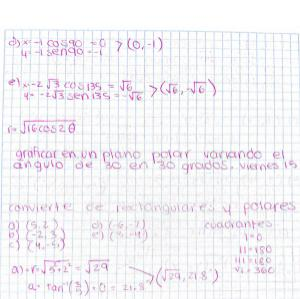 d) x=-1 cos 90 = 0 > (0,-1)
y=-1 sen 90 = -1
e) x=-2√3 cos 135 = √6 > (√6, -√6)
y=-2√3 sen 135 = -√6
r=√16 cos 2θ
graficar en un plano polar variando el
ángulo de 30 en 30 grados. viernes 15
convierte de rectangulares y polares
a) (5,2) d) (-6,-7) cuadrantes
b) (-2,3) I=0
c) (4,-5) II=180
III=180
IV=360
a) r=√5²+2² = √29 > (√29, 21.8°)
a= tan⁻¹ + 0 = 21.8